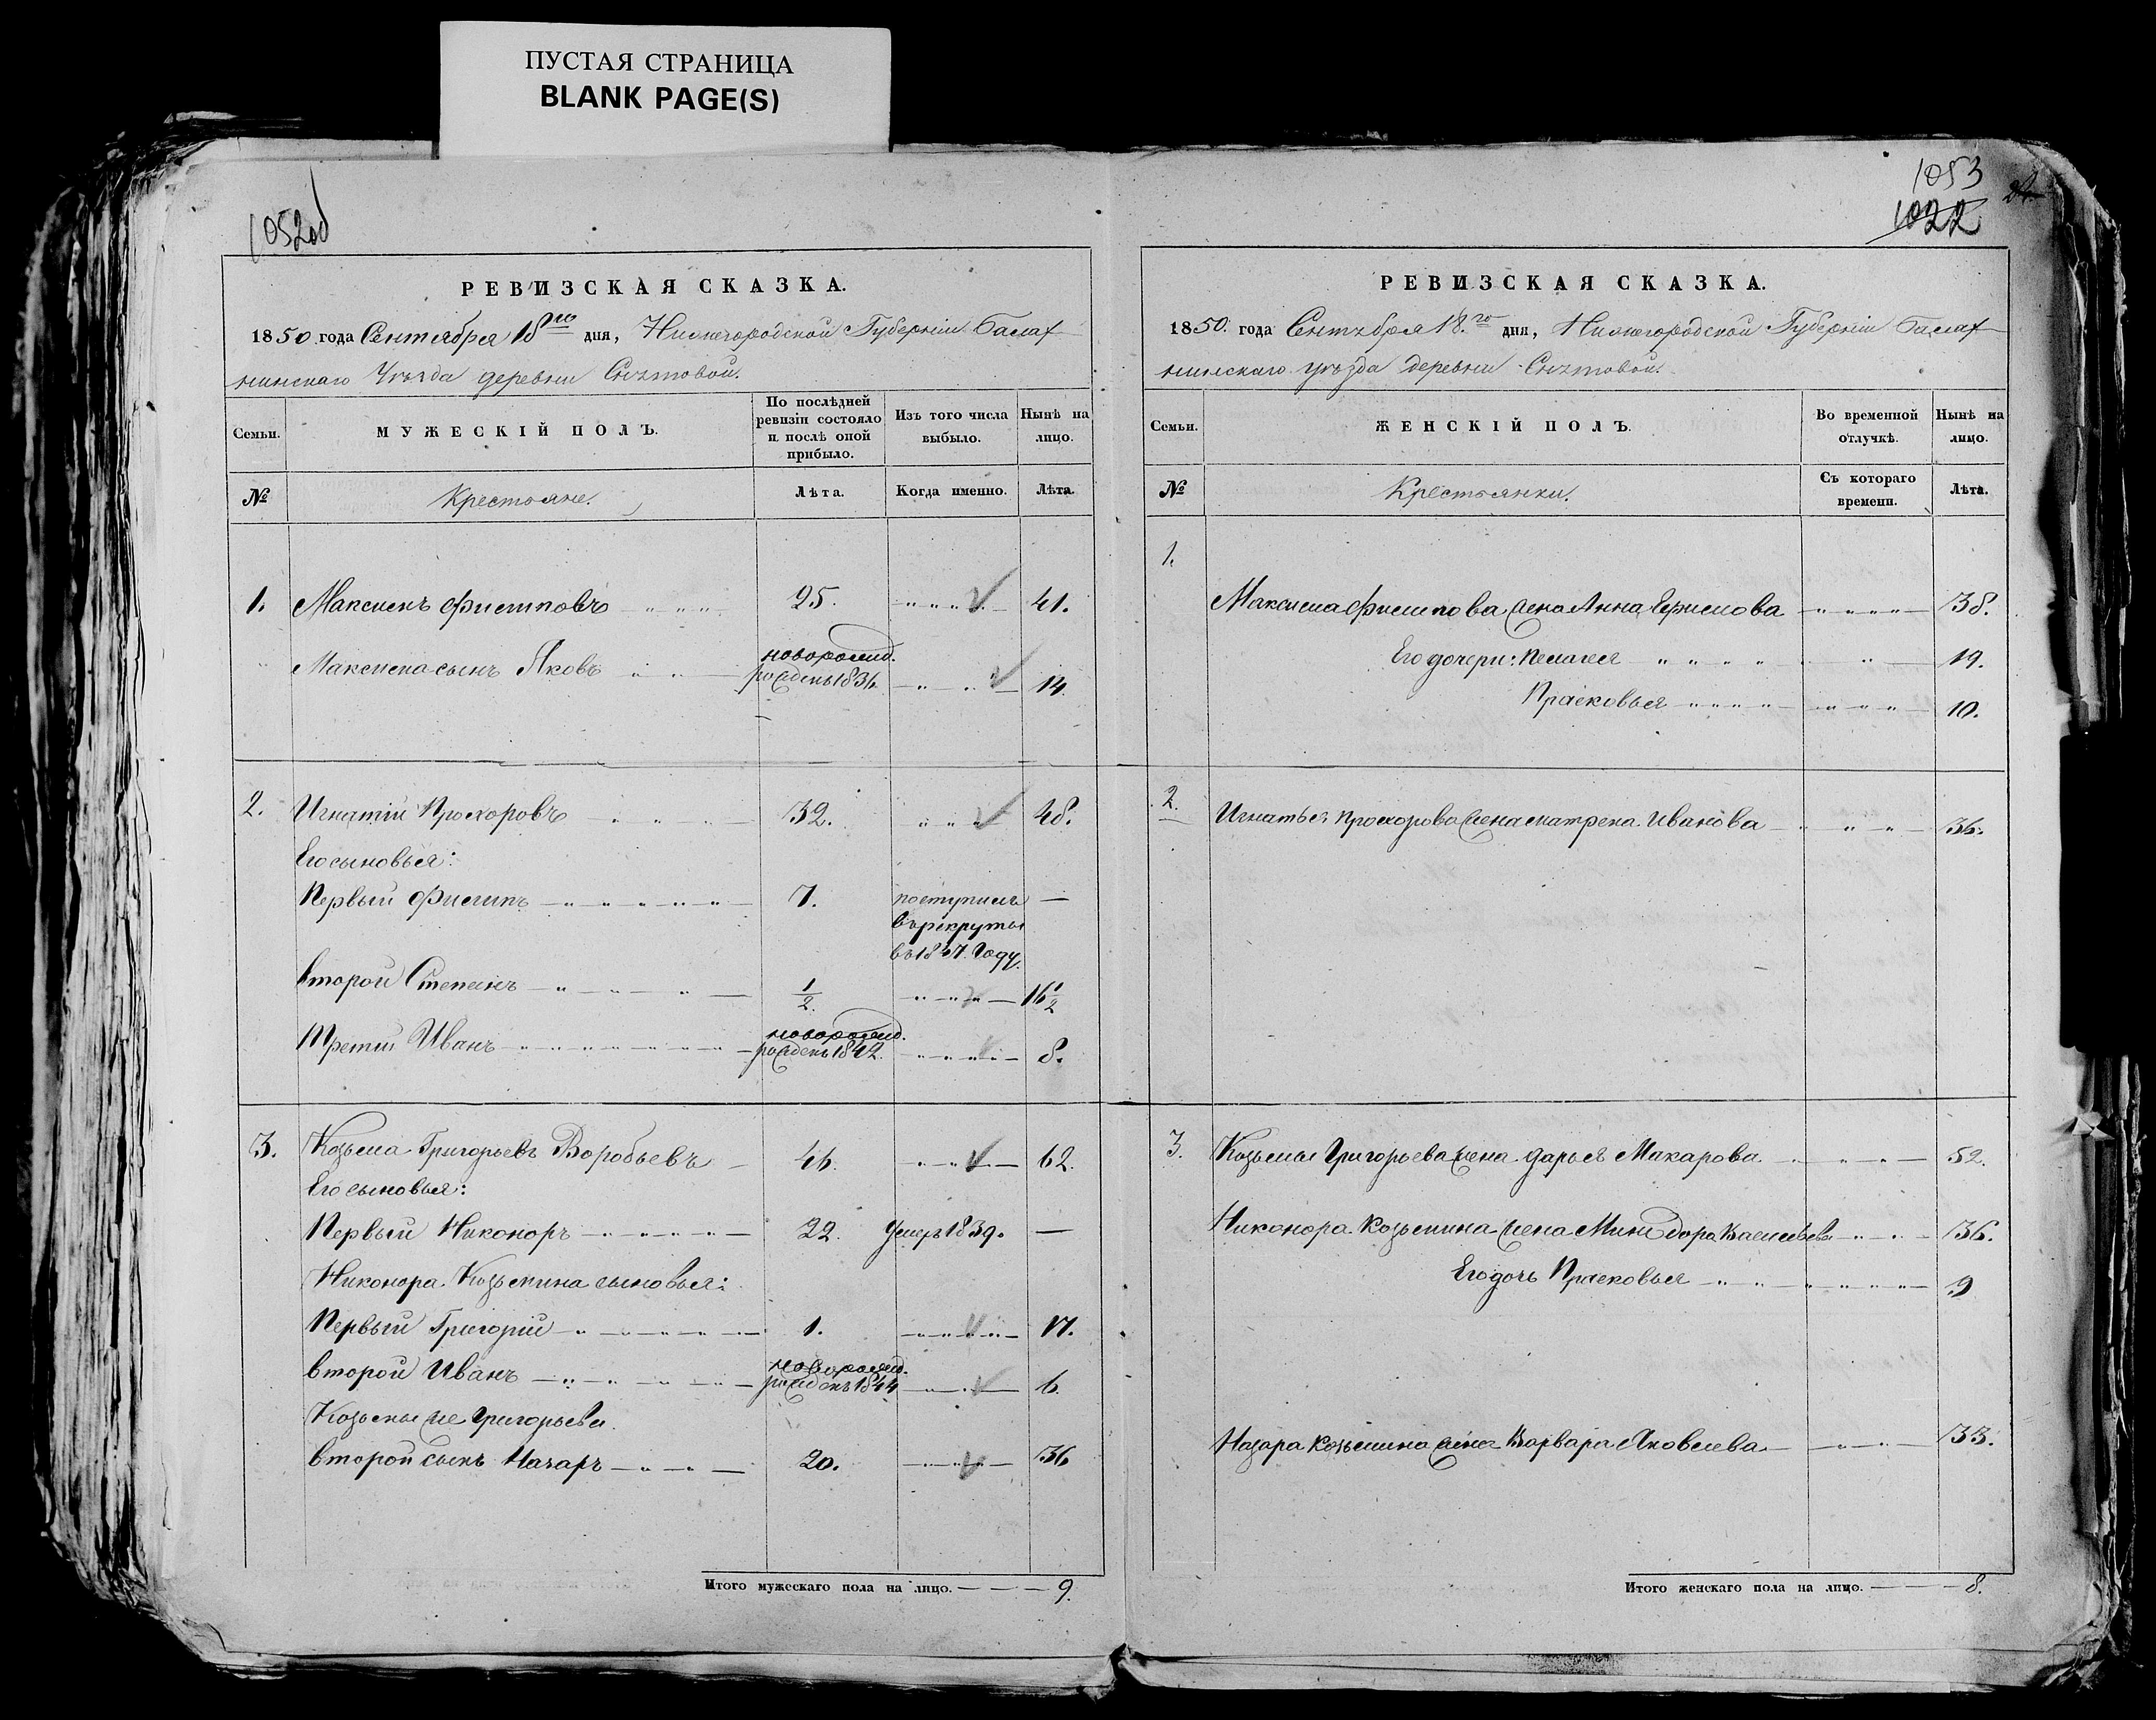 ПУСТАЯ СТРАНИЦА
BLANK PAGE(S)
1052об
РЕВИЗСКАЯ СКАЗКА.
1850 года Сентября 18го дня, Нижегородской Губерніи Балах
нинскаго Уѣзда деревни
Семьи.
МУЖЕСКІЙ ПОЛЪ.
По послѣдней ревизіи состояло и послѣ оной прибыло.
Изъ того числа выбыло.
Нынѣ на лицо.
№
Крестьяне.
Лѣта.
Когда именно.
Лѣта.
1. Максимъ Филиповъ 25. 41.
Максима сынъ Яковъ новорожд. рожденъ 1836 14.
2. Игнатій Прохоровъ 32. 48.
Его сыновья:
Первый Филипъ 7. поступилъ —
въ рекруты
въ 1847. Году.
второй Степанъ 1/2. 16 1/2
Третій Иванъ новорожд. рожденъ 1842. 8.
3. Козьма Григорьевъ Воробьевъ 46. 62.
Его сыновья:
Первый Никоноръ 22. Умеръ 1839. —
Никонора Козьмина сыновья:
Первый Григорій 1. 17.
второй Иванъ новорожд. рожденъ 1844 6.
Козьмы же Григорьева
второй сынъ Назаръ 20. 36
Итого мужескаго пола на лицо. — — — 9.
1053
1022
РЕВИЗСКАЯ СКАЗКА.
1850. года Сентября 18.го дня, Нижегородской Губерніи Балах
нинскаго уѣзда деревни
Семьи.
ЖЕНСКІЙ ПОЛЪ.
Во временной отлучкѣ.
Нынѣ на лицо.
№
Крестьянки.
Съ котораго времени.
Лѣта.
1.
Максима Филипова жена Анна Ермилова 38.
Его дочери: Пелагея 19.
Прасковья 10.
2. Игнатья Прохорова жена Матрена Иванова 36.
3. Козьмы Григорьева жена Дарья Макарова 52.
Никонора Козьмина жена Минодора Васильева 36.
Его дочь Прасковья 9
Назара Козьмина жена Варвара Яковлева 33.
Итого женскаго пола на лицо. — — — 8.